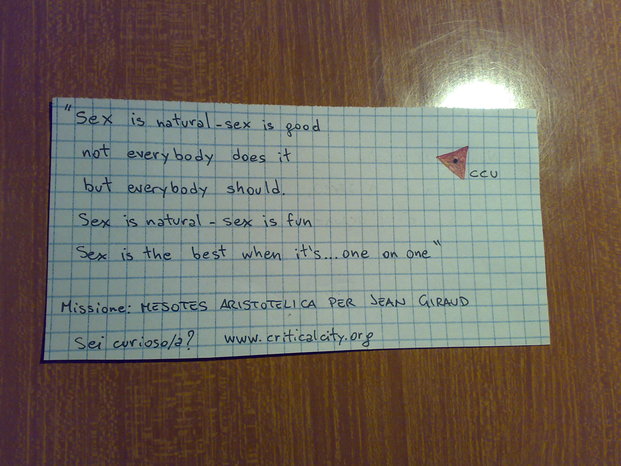 "Sex is natural - sex is good
not everybody does it
but everybody should.
Sex is natural - sex is fun
Sex is the best when it's...one on one"
CCU
Missione: MESOTES ARISTOTELICA PER JEAN GIRAUD
Sei curioso/a? www.criticalcity.org